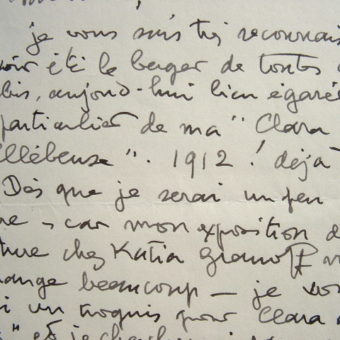 je vous suis très reconnais
oir été le berger de toutes
bis, aujourd-hui bien égaré
particulier de ma "Clara
llébeuse". 1912! déjà
Dès que je serai un peu
re - car mon exposition d
ture chez Katia Granoff
ange beaucoup - je vou
i un croquis pour Clara d
" et je